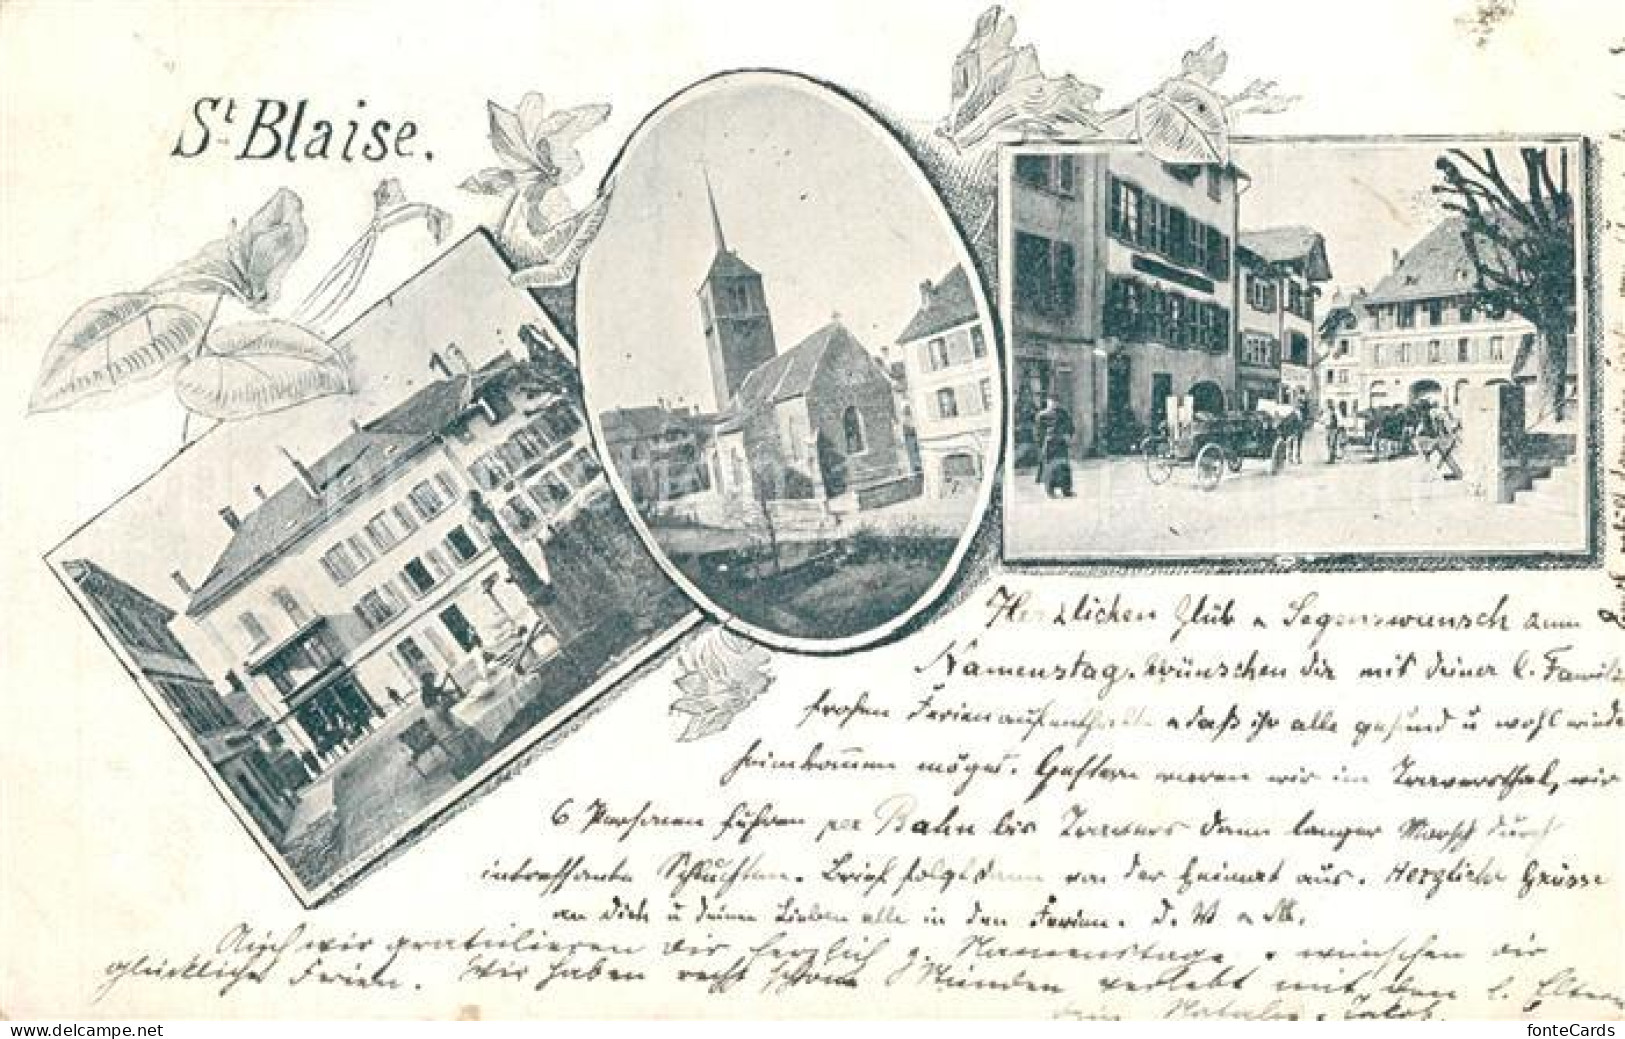 St Blaise.
Herzlichen Glük u Segenswunsch zum
Namenstag. wünschen dir mit deiner l. Famili
frohen Ferienaufenthalt u daß ihr alle gesund u wohl wieder
heimkommen möget. Gestern waren wir im Traversthal, wir
6 Personen fuhren per Bahn bis Travers dann langer Marsch durch
intressante Schluchten. Brief folgt dann von der Heimat aus. Herzliche Grüsse
an dich u deine Lieben alle in den Ferien. d. W u M.
Auch wir gratulieren dir herzlich z. Namenstage u wünschen dir
glückliche Ferien. Wir haben recht schöne Stunden verlebt mit den l. Eltern
Jakob.
fonteCards
www.delcampe.net